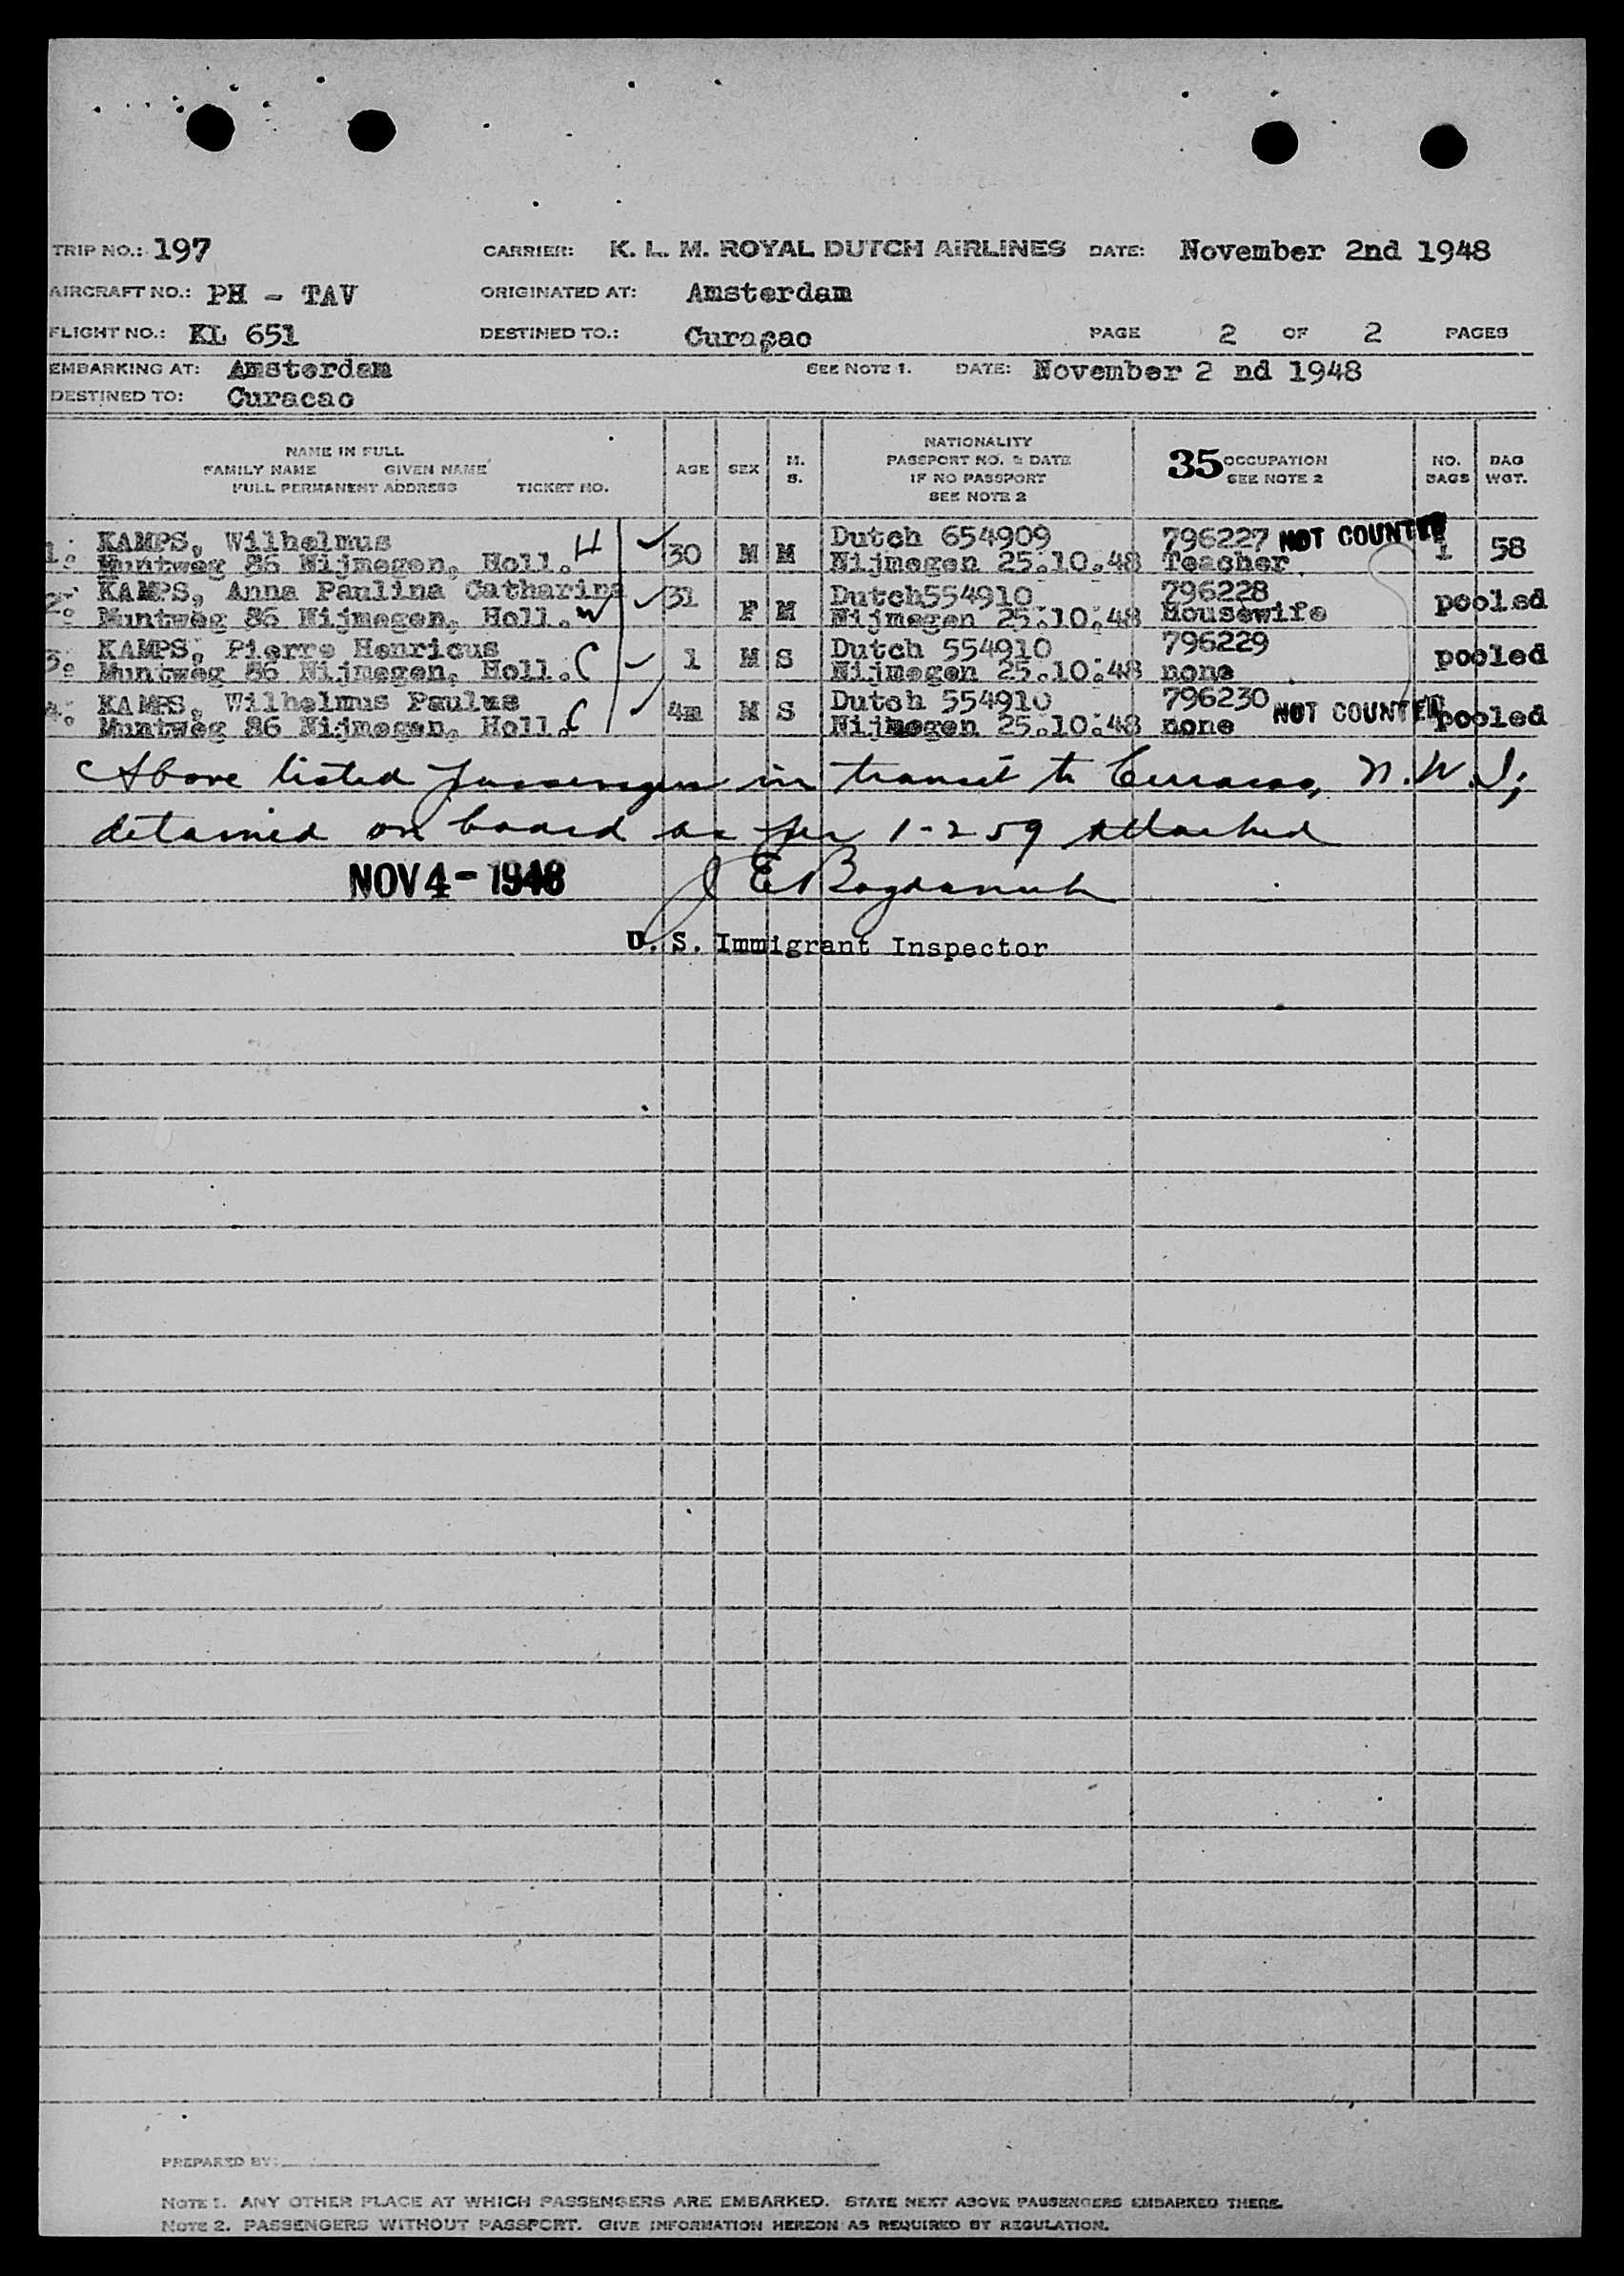 TRIP NO.: 197 CARRIER: K. L. M. ROYAL DUTCH AIRLINES DATE: November 2nd 1948
AIRCRAFT NO.: PH - TAV ORIGINATED AT: Amsterdam
FLIGHT NO.: KL 651 DESTINED TO.: Curaçao PAGE 2 OF 2 PAGES
EMBARKING AT: Amsterdam SEE NOTE 1. DATE: November 2 nd 1948
DESTINED TO: Curacao
NAME IN FULL
FAMILY NAME GIVEN NAME
FULL PERMANENT ADDRESS TICKET NO.
AGE
SEX
M.
S.
NATIONALITY
PASSPORT NO. & DATE
IF NO PASSPORT
SEE NOTE 2
35 OCCUPATION
SEE NOTE 2
NO.
BAGS
BAG
WGT.
1. KAMPS, Wilhelmus H 30 M M Dutch 654909 796227 NOT COUNTED 1 58
Muntweg 86 Nijmegen, Holl. Nijmegen 25.10.48 Teacher
2. KAMPS, Anna Paulina Catharina 31 F M Dutch554910 796228 pooled
Muntweg 86 Nijmegen, Holl. W Nijmegen 25.10.48 Housewife
3. KAMPS, Pierre Henricus 1 M S Dutch 554910 796229 pooled
Muntweg 86 Nijmegen, Holl. C Nijmegen 25.10.48 none
4. KAMPS, Wilhelmus Paulus 4m M S Dutch 554910 796230 NOT COUNTED pooled
Muntweg 86 Nijmegen, Holl. C Nijmegen 25.10.48 none
Above listed passengers in transit to Curacao, N.W.I;
detained on board as per 1-259 attached
NOV 4 - 1948 J E Bogdanuk
U. S. Immigrant Inspector
PREPARED BY:
NOTE 1. ANY OTHER PLACE AT WHICH PASSENGERS ARE EMBARKED. STATE NEXT ABOVE PASSENGERS EMBARKED THERE.
NOTE 2. PASSENGERS WITHOUT PASSPORT. GIVE INFORMATION HEREON AS REQUIRED BY REGULATION.